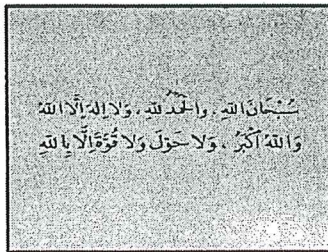 سُبْحَانَ اللهِ ، وَالْحَمْدُ لِلَّهِ ، وَلَا إِلَهَ إِلَّا اللهُ
وَاللهُ أَكْبَرُ ، وَلَا حَوْلَ وَلَا قُوَّةَ إِلَّا بِاللهِ